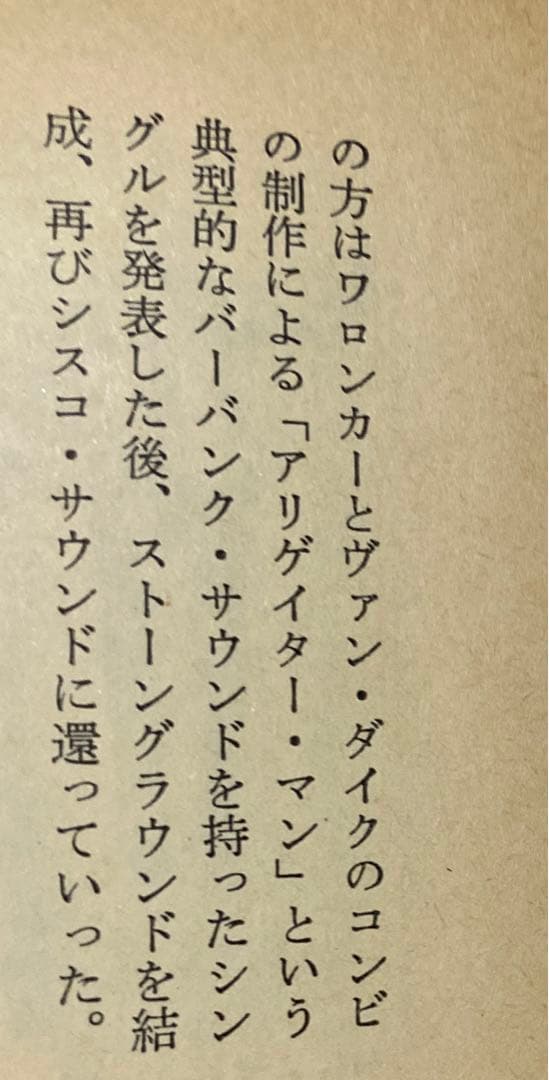 の方はワロンカーとヴァン・ダイクのコンビ
の制作による「アリゲイター・マン」という
典型的なバーバンク・サウンドを持ったシン
グルを発表した後、ストーングラウンドを結
成、再びシスコ・サウンドに還っていった。